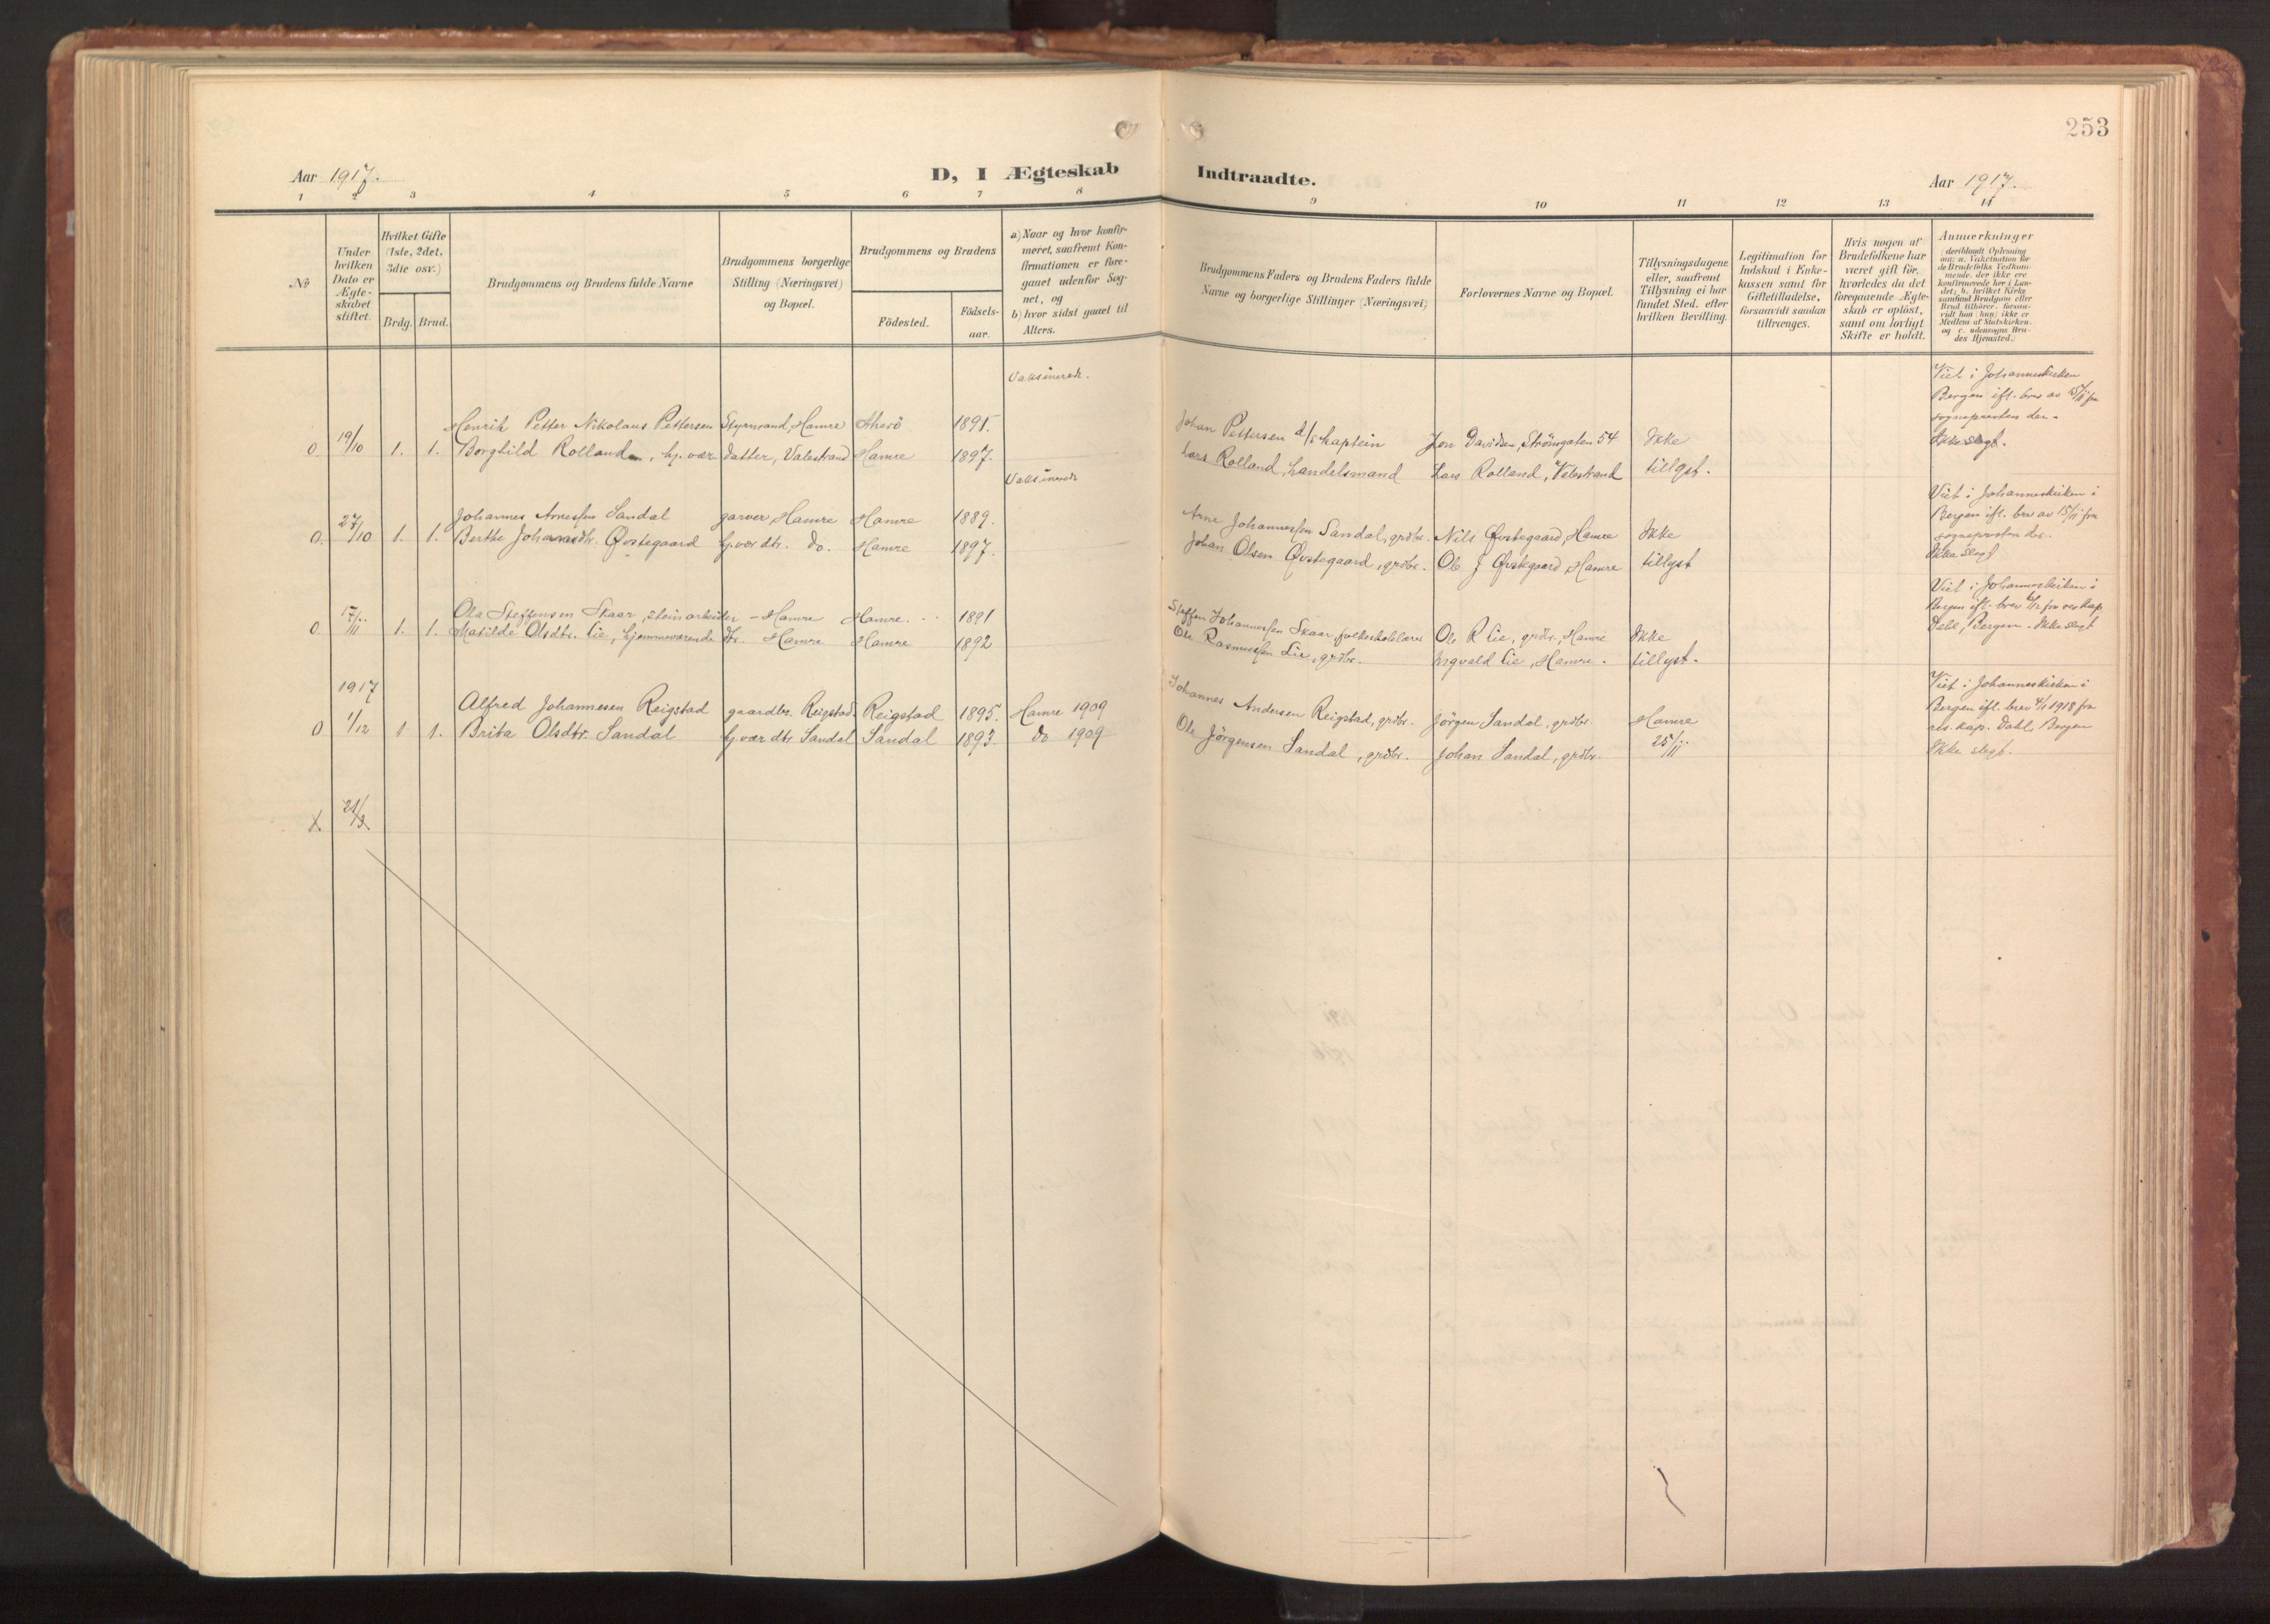 253
Aar 1917.
D, I Ægteskab
Indtraadte.
Aar 1917.
1 2 3 4 5 6 7 8
9 10 11 12 13 14
No
Under hvilken Dato er Ægte-skabet stiftet.
Hvilket Gifte (1ste, 2det, 3die osv.)
Brdg. Brud.
Brudgommens og Brudens fulde Navne
Brudgommens borgerlige Stilling (Næringsvei) og Bopæl.
Brudgommens og Brudens
Fødested.
Fødsels-aar.
a) Naar og hvor konfir-meret, saafremt Kon-firmationen er fore-gaaet udenfor Sog-net, og
b) hvor sidst gaaet til Alters.
Brudgommens Faders og Brudens Faders fulde Navne og borgerlige Stillinger (Næringsvei)
Forlovernes Navne og Bopæl.
Tillysningsdagene eller, saafremt Tillysning ei har fundet Sted, efter hvilken Bevilling.
Legitimation for Indskud i Enke-kassen samt for Giftetilladelse, forsaavidt saadan tiltrænges.
Hvis nogen af Brudefolkene har været gift før, hvorledes da det foregaaende Ægte-skab er opløst, samt om lovligt Skifte er holdt.
Anmærkninger
Vaksinerede.
Henrik Petter Nikolaus Pettersen Styrmand, Hamre 1891.
0 19/10 1. 1. Borghild Rolland, hj. vær. datter, Valestrand Hamre 1897.
Johan Pettersen d/s kaptein Jon Davidsen, Strömgaten 54 Ikke
Lars Rolland, handelsmand Lars Rolland, Valestrand tillyst.
Viet i Johanneskirken
Bergen ifl. brev av 15/11 fra
sognepresten der.
Ikke slegt.
Vaksinerede
Johannes Arnessen Sandal garver, Hamre Hamre 1889.
0. 27/10 1. 1. Berthe Johannsdtr. Øvstegaard hj. vær dtr. do. Hamre 1897.
Arne Johannessen Sandal, grdbr. Nils Øvstegaard, Hamre Ikke
Johan Olsen Øvstegaard, grdbr. Ole J Øvstegaard, Hamre tillyst
Viet i Johanneskirken i
Bergen ifl. brev av 15/11 fra
sognepresten der.
Ikke slegt
Ola Steffensen Skaar, steinarbeider - Hamre Hamre. 1891
0 17/11 1. 1. Matilde Olsdtr. Lie, hjemmeværende dtr. Hamre Hamre 1892
Steffen Johannessen Skaar, folkeskolelærer Ole R Lie, grdbr., Hamre Ikke
Ole Rasmussen Lie, grdbr. Ingvald Lie, Hamre. tillyst.
Viet i Johanneskirken i
Bergen ifl. brev fra res kap
Dahl, Bergen. Ikke slegt
1917
Alfred Johannesen Reigstad gaardbr. Reigstad Reigstad 1895. Hamre 1909
0 1/12 1 1. Brita Olsdtr. Sandal hj. vær dtr Sandal Sandal 1893. do 1909
Johannes Andersen Reigstad, grdbr. Jörgen Sandal, grdbr. Hamre
Ole Jörgensen Sandal, grdbr. Johan Sandal, grdbr. 25/11
Viet i Johanneskirken i
Bergen ifl. brev 4/1 1918 fra
res. kap. Dahl, Bergen
Ikke slegt.
X 21/3